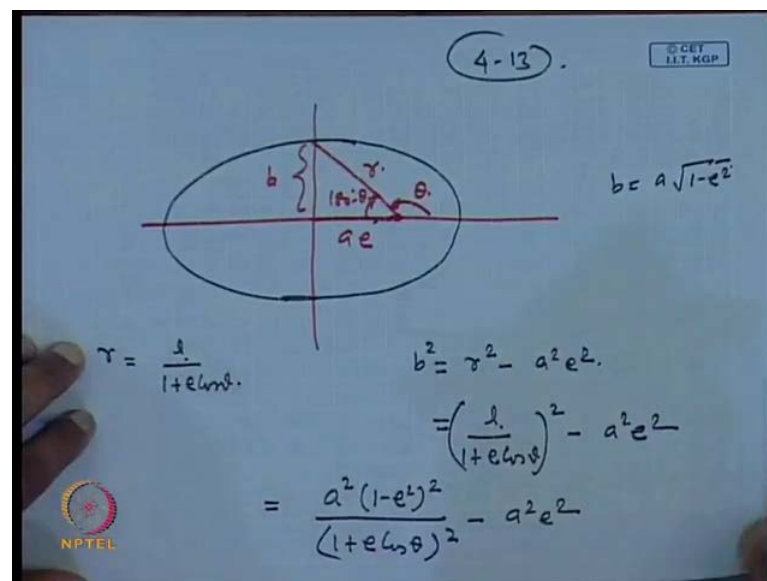 4-13.
© CET
I.I.T. KGP
b
r.
180-θ
θ.
ae
b = a √1-e²
r = l / 1+e cosθ.
b² = r² - a²e².
= (l / 1+e cosθ)² - a²e²
= a²(1-e²)² / (1+e cosθ)² - a²e²
NPTEL